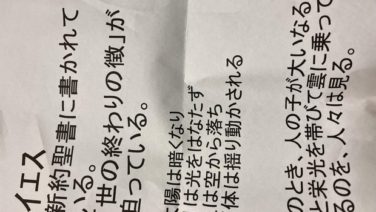 イエス
新約聖書に書かれて
いる。
世の終わりの徴」が
迫っている。
太陽は暗くなり
は光をはなたず
は空から落ち
体は揺り動かされる
のとき、人の子が大いなる
と栄光を帯びて雲に乗って
るのを、人々は見る。